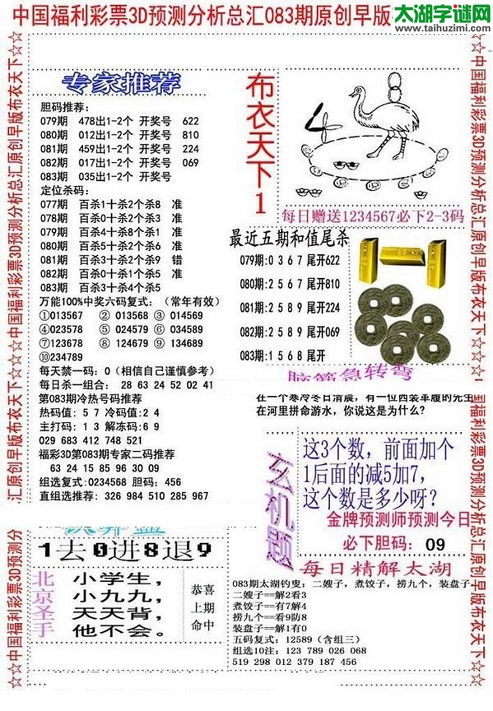 中国福利彩票3D预测分析总汇083期原创早版
太湖字谜网
www.taihuzimi.com
专家推荐
胆码推荐:
079期 478出1-2个 开奖号 622
080期 012出1-2个 开奖号 810
081期 459出1-2个 开奖号 224
082期 017出1-2个 开奖号 069
083期 035出1-2个 开奖号
定位杀码:
077期 百杀1十杀2个杀8 准
078期 百杀3十杀2个杀9 准
079期 百杀4十杀8个杀1 准
080期 百杀6十杀3个杀2 准
081期 百杀2十杀8个杀9 错
082期 百杀0十杀1个杀1 准
083期 百杀3十杀4个杀5
万能100%中奖六码复式:（常年有效）
①013567 ②013568 ③014569
④023578 ⑤024579 ⑥034679
⑦123678 ⑧124679 ⑨134689
⑩234789
每天禁一码: 0（相信自己谨慎参考）
每日杀一组合: 28 63 24 52 02 41
第083期冷热号码推荐
热码值: 5 7 冷码值: 2 4
主打码: 1 3 解冻码: 6 9
029 683 412 748 521
福彩3D第083期专家二码推荐
63 24 15 85 96 30 09
组选复式: 0234568 胆码: 456
直组选推荐: 326 984 510 285 967
布衣天下1
每日赠送1234567必下2-3码
最近五期和值尾杀
079期:0 3 6 7 尾开622
080期:2 5 6 7 尾开810
081期:2 5 8 9 尾开224
082期:2 5 8 9 尾开069
083期:1 5 6 8 尾开
脑筋急转弯
在一个寒冷冬日清晨，有一位西装革履的先生
在河里拼命游水，你说这是为什么?
玄机题
这3个数，前面加个
1后面的减5加7，
这个数是多少呀?
金牌预测师预测今日
必下胆码: 09
1去0进8退9
北京圣手
小学生，
小九九，
天天背，
他不会。
恭喜
上期
命中
每日精解太湖
083期太湖钓叟: 二嫂子，煮饺子，捞九个，装盘子
二嫂子==解2看3
煮饺子==有7解4
捞九个==看9防8
装盘子==解1有0
五码复式: 12589（含组三）
组选10注: 123 789 026 068
519 298 012 379 187 456
☆☆中国福利彩票3D预测分析总汇原创早版布衣天下☆☆
☆☆中国福利彩票3D预测分析总汇原创早版布衣天下☆☆